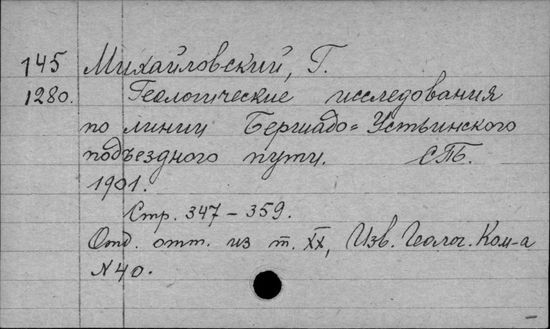 145 Михайловский, Г.
1280. Геологические исследования
по линии Бершадо=Устьинского
подъездного пути. СПБ.
1901.
Стр. 347-359.
Отд. отт. из т. XX, Изв. Геолог. Ком-а
N 40.